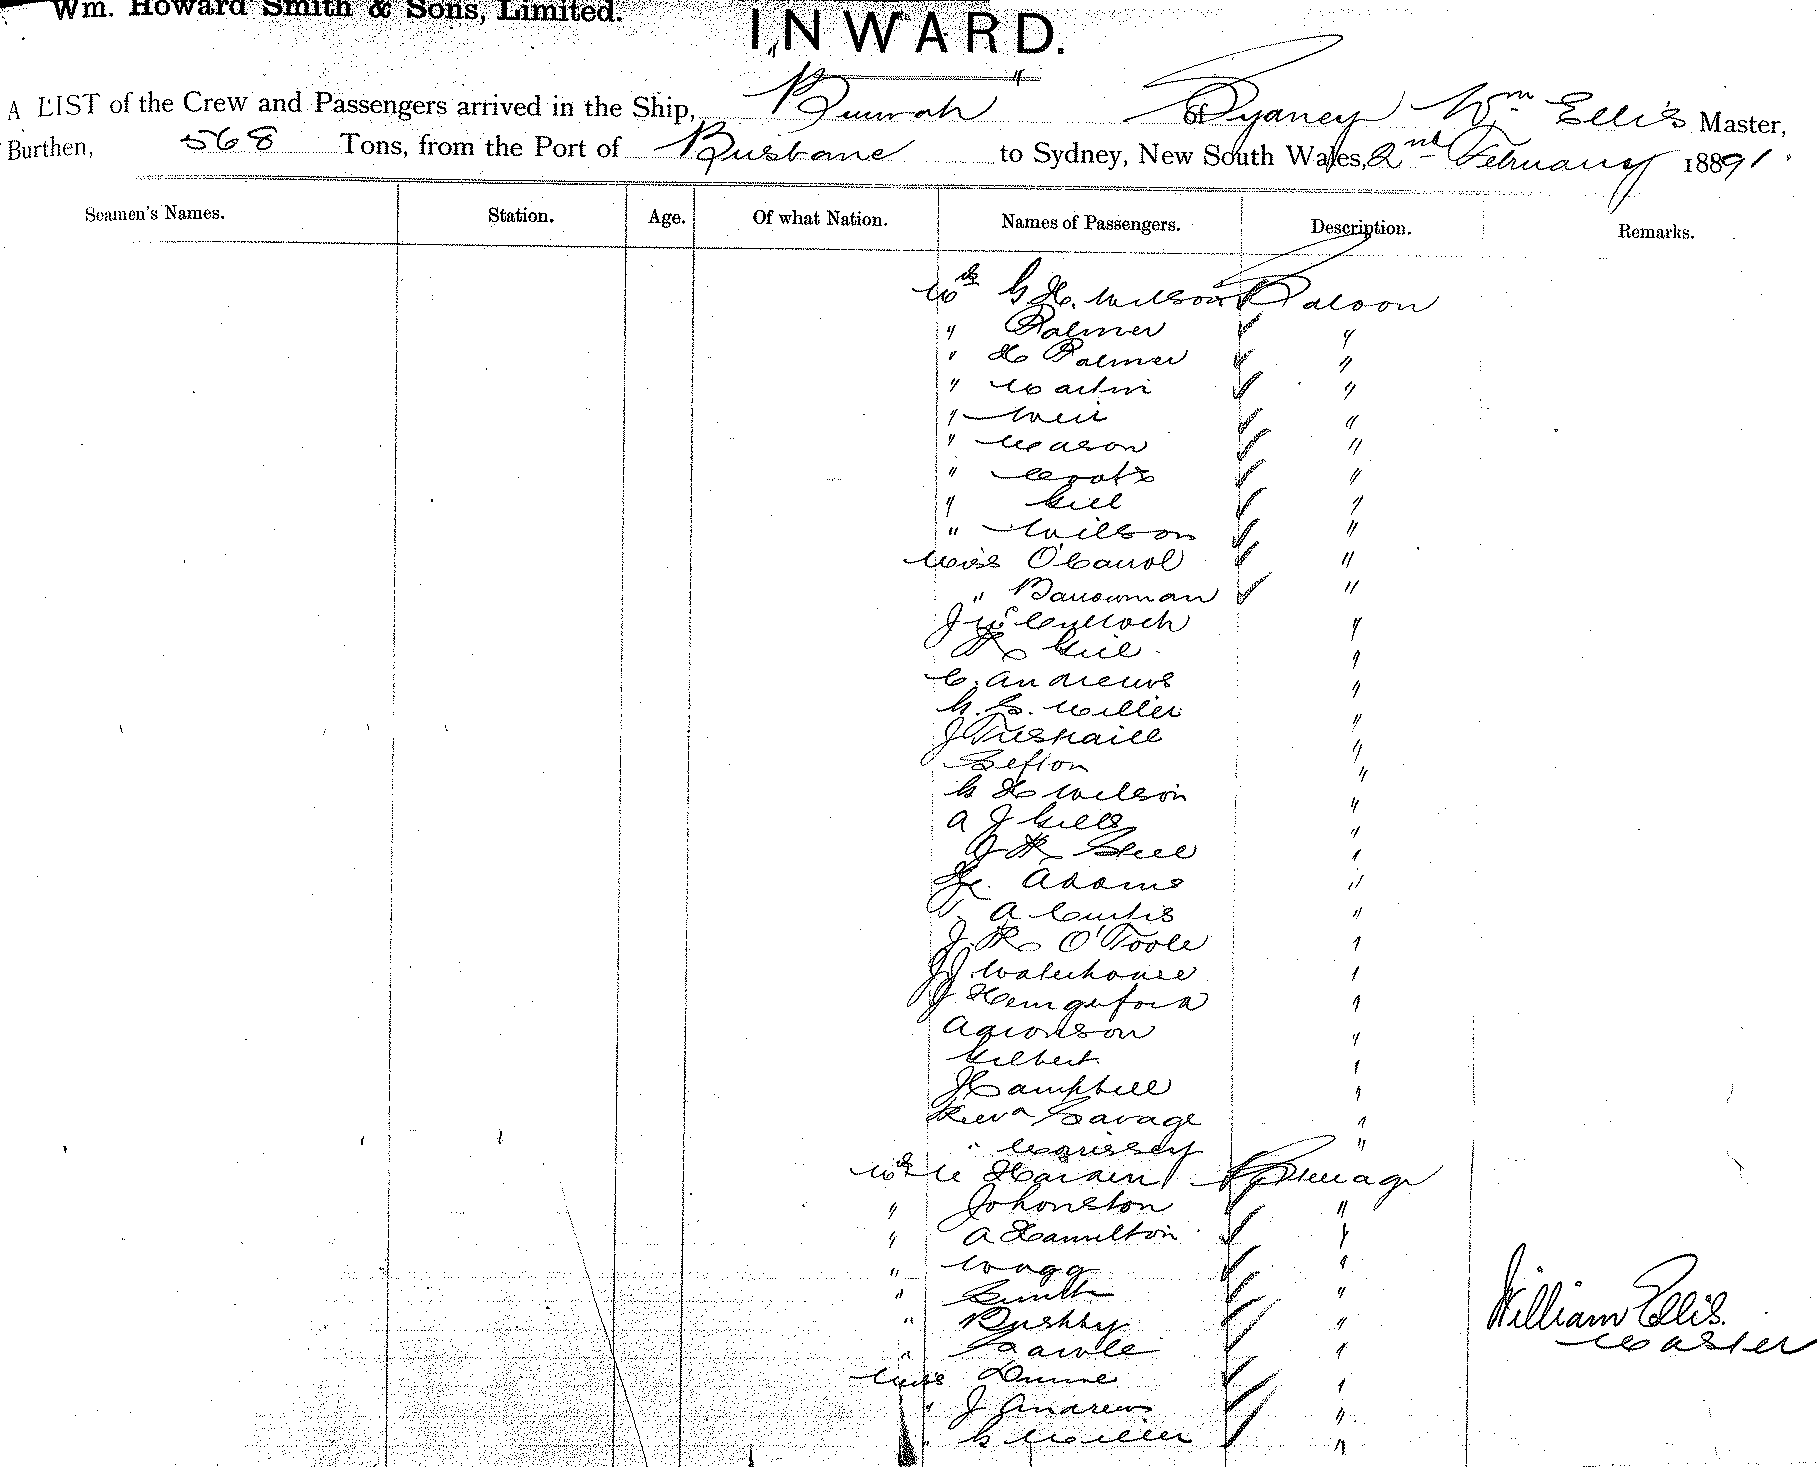 Wm. Howard Smith & Sons, Limited.
INWARD.
A LIST of the Crew and Passengers arrived in the Ship, Burrah of Sydney Wm Ellis Master,
Burthen, 568 Tons, from the Port of Brisbane to Sydney, New South Wales, 2nd February 1891
Seamen's Names. Station. Age. Of what Nation. Names of Passengers. Description. Remarks.
Mrs G H. Wilson Saloon
" Palmer "
" H Palmer "
" Martin "
" Weir "
" Mason "
" "
" Gill "
" Willson "
Miss O'Carrol "
" Bauerman "
J McCulloch "
R Gill "
C. Andrews "
G. C. Miller "
J "
Sefton "
G H Wilson "
A J Gills "
J R "
H. Adams "
T. A Curtis "
J. R O'Toole "
J J Waterhouse "
J Hemgsford "
Aaronson "
Gilbert "
J Campbell "
Revd Savage "
" "
Mrs M Harden Steerage
" Johonston "
" A Hamilton "
" Wragg "
" Smith "
" Bushby "
" Sawle "
Miss Dunne "
" J Andrews "
" G Miller "
William Ellis.
Master